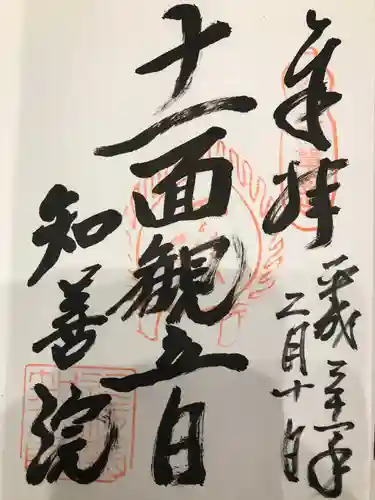 奉拝
平成三十一年
二月十日
十一面観立日
知善院